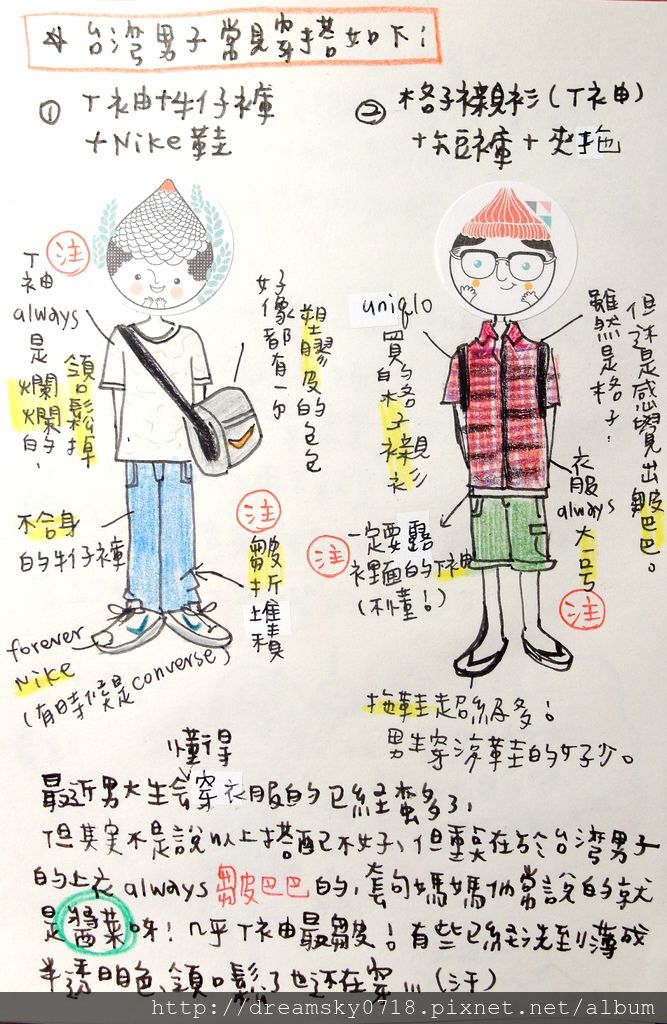 * 台灣男子常見穿搭如下:
① T衣由+牛仔褲
+Nike鞋
② 格子襯衫(T衣由)
+短褲+夾拖
注
T袖
always
是
爛爛的.
領口鬆掉
好像都有一個
塑膠皮的包包
不合身
的牛仔褲
注
皺折
堆積
forever
Nike
(有時候是converse)
uniqlo
買的
格子襯衫
雖然是格子.
但還是感覺出皺巴巴。
衣服
always
大一号
注
注
一定要露
裡面的T衣由
(不懂!)
拖鞋超級多!
男生穿涼鞋的好少。
懂得
最近男大生會穿衣服的已經蠻多了,
但其実不是說以上搭配不好、但重点在於台灣男子
的上衣always皺皮巴巴的,套句媽媽們常說的就
是醬菜味!几乎T衣由最皺!有些已經洗到薄成
半透明色、領口鬆了也還在穿...(汗)
http://dreamsky0718.pixnet.net/album